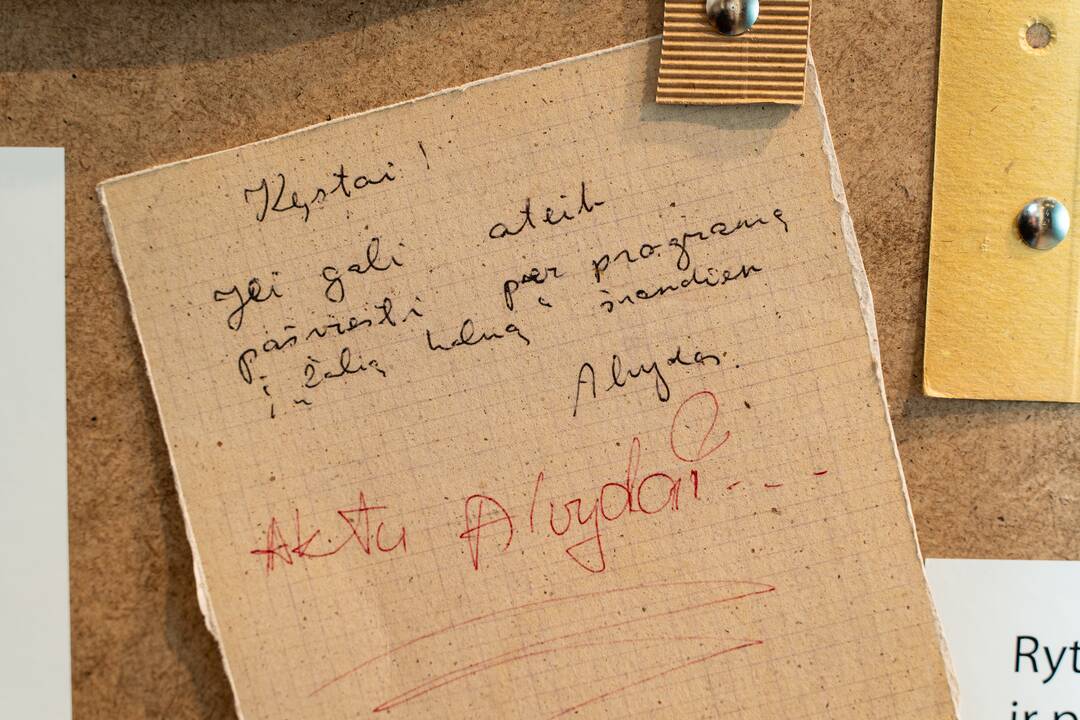 Kęstai!
Jei gali ateik
pašviesti per programą
į "Žalią kalną" šiandien
Alvydas.
Ak Tu Alvydai...
Ryt
ir p